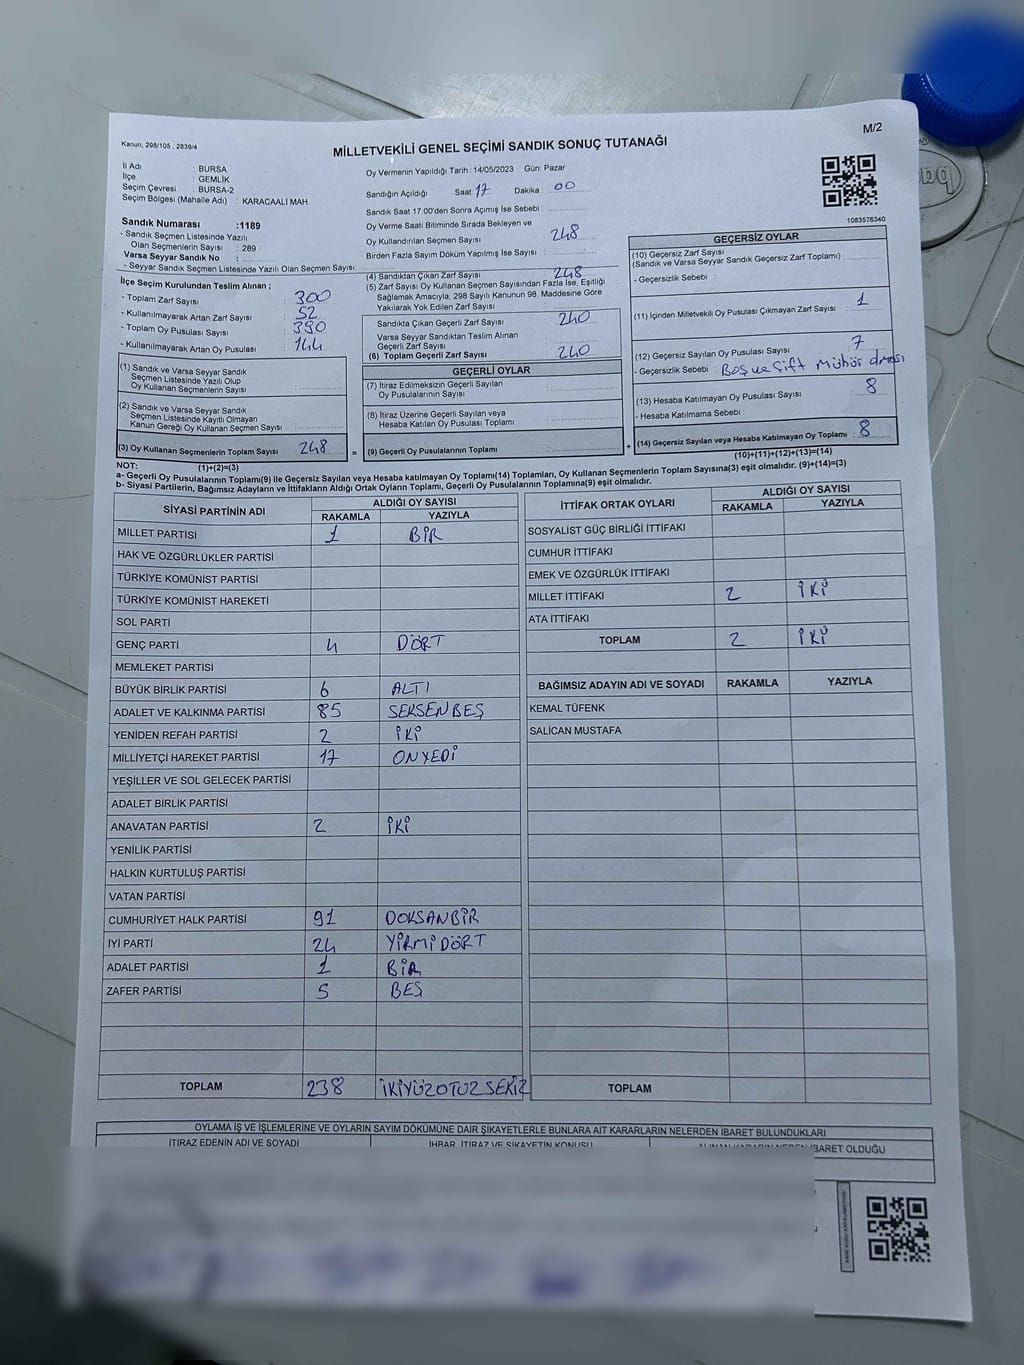 Kanun, 298/105 , 2839/4
MİLLETVEKİLİ GENEL SEÇİMİ SANDIK SONUÇ TUTANAĞI
M/2
İl Adı : BURSA
İlçe : GEMLİK
Seçim Çevresi : BURSA-2
Seçim Bölgesi (Mahalle Adı) : KARACAALİ MAH.
Sandık Numarası :1189
- Sandık Seçmen Listesinde Yazılı
Olan Seçmenlerin Sayısı : 289
Varsa Seyyar Sandık No :
- Seyyar Sandık Seçmen Listesinde Yazılı Olan Seçmen Sayısı:
İlçe Seçim Kurulundan Teslim Alınan ;
- Toplam Zarf Sayısı : 300
- Kullanılmayarak Artan Zarf Sayısı : 52
- Toplam Oy Pusulası Sayısı : 390
- Kullanılmayarak Artan Oy Pusulası : 144
(1) Sandık ve Varsa Seyyar Sandık
Seçmen Listesinde Yazılı Olup
Oy Kullanan Seçmenlerin Sayısı :
(2) Sandık ve Varsa Seyyar Sandık
Seçmen Listesinde Kayıtlı Olmayan
Kanun Gereği Oy Kullanan Seçmen Sayısı :
(3) Oy Kullanan Seçmenlerin Toplam Sayısı : 248 =
Oy Vermenin Yapıldığı Tarih :14/05/2023 Gün: Pazar
Sandığın Açıldığı Saat: 17 Dakika : 00
Sandık Saat 17:00'den Sonra Açımış İse Sebebi :
Oy Verme Saati Bitiminde Sırada Bekleyen ve
Oy Kullandırılan Seçmen Sayısı : 248
Birden Fazla Sayım Döküm Yapılmış İse Sayısı :
(4) Sandıktan Çıkan Zarf Sayısı : 248
(5) Zarf Sayısı Oy Kullanan Seçmen Sayısından Fazla İse, Eşitliği
Sağlamak Amacıyla, 298 Sayılı Kanunun 98. Maddesine Göre
Yakılarak Yok Edilen Zarf Sayısı :
Sandıkta Çıkan Geçerli Zarf Sayısı : 240
Varsa Seyyar Sandıktan Teslim Alınan
Geçerli Zarf Sayısı :
(6) Toplam Geçerli Zarf Sayısı : 240
GEÇERLİ OYLAR
(7) İtiraz Edilmeksizin Geçerli Sayılan
Oy Pusulalarının Sayısı :
(8) İtiraz Üzerine Geçerli Sayılan veya
Hesaba Katılan Oy Pusulası Toplamı :
(9) Geçerli Oy Pusulalarının Toplamı : +
1083576340
GEÇERSİZ OYLAR
(10) Geçersiz Zarf Sayısı
(Sandık ve Varsa Seyyar Sandık Geçersiz Zarf Toplamı) :
- Geçersizlik Sebebi :
(11) İçinden Milletvekili Oy Pusulası Çıkmayan Zarf Sayısı : 1
(12) Geçersiz Sayılan Oy Pusulası Sayısı : 7
- Geçersizlik Sebebi : Boş ve Çift Mühür olması
(13) Hesaba Katılmayan Oy Pusulası Sayısı : 8
- Hesaba Katılmama Sebebi :
(14) Geçersiz Sayılan veya Hesaba Katılmayan Oy Toplamı : 8
(10)+(11)+(12)+(13)=(14)
NOT: (1)+(2)=(3)
a- Geçerli Oy Pusulalarının Toplamı(9) ile Geçersiz Sayılan veya Hesaba Katılmayan Oy Toplamı(14) Toplamları, Oy Kullanan Seçmenlerin Toplam Sayısına(3) eşit olmalıdır. (9)+(14)=(3)
b- Siyasi Partilerin, Bağımsız Adayların ve İttifakların Aldığı Ortak Oyların Toplamı, Geçerli Oy Pusulalarının Toplamına(9) eşit olmalıdır.
SİYASİ PARTİNİN ADI
ALDIĞI OY SAYISI
RAKAMLA YAZIYLA
MİLLET PARTİSİ 1 BİR
HAK VE ÖZGÜRLÜKLER PARTİSİ
TÜRKİYE KOMÜNİST PARTİSİ
TÜRKİYE KOMÜNİST HAREKETİ
SOL PARTİ
GENÇ PARTİ 4 DÖRT
MEMLEKET PARTİSİ
BÜYÜK BİRLİK PARTİSİ 6 ALTI
ADALET VE KALKINMA PARTİSİ 85 SEKSENBEŞ
YENİDEN REFAH PARTİSİ 2 İKİ
MİLLİYETÇİ HAREKET PARTİSİ 17 ONYEDİ
YEŞİLLER VE SOL GELECEK PARTİSİ
ADALET BİRLİK PARTİSİ
ANAVATAN PARTİSİ 2 İKİ
YENİLİK PARTİSİ
HALKIN KURTULUŞ PARTİSİ
VATAN PARTİSİ
CUMHURİYET HALK PARTİSİ 91 DOKSANBİR
İYİ PARTİ 24 YİRMİDÖRT
ADALET PARTİSİ 1 BİR
ZAFER PARTİSİ 5 BEŞ
TOPLAM 238 İKİYÜZOTUZSEKİZ
İTTİFAK ORTAK OYLARI
ALDIĞI OY SAYISI
RAKAMLA YAZIYLA
SOSYALİST GÜÇ BİRLİĞİ İTTİFAKI
CUMHUR İTTİFAKI
EMEK VE ÖZGÜRLÜK İTTİFAKI
MİLLET İTTİFAKI 2 İKİ
ATA İTTİFAKI
TOPLAM 2 İKİ
BAĞIMSIZ ADAYIN ADI VE SOYADI RAKAMLA YAZIYLA
KEMAL TÜFENK
SALİCAN MUSTAFA
TOPLAM
OYLAMA İŞ VE İŞLEMLERİNE VE OYLARIN SAYIM DÖKÜMÜNE DAİR ŞİKAYETLERLE BUNLARA AİT KARARLARIN NELERDEN İBARET BULUNDUKLARI
İTİRAZ EDENİN ADI VE SOYADI İHBAR, İTİRAZ VE ŞİKAYETİN KONUSU ALINAN KARARIN NEDEN İBARET OLDUĞU